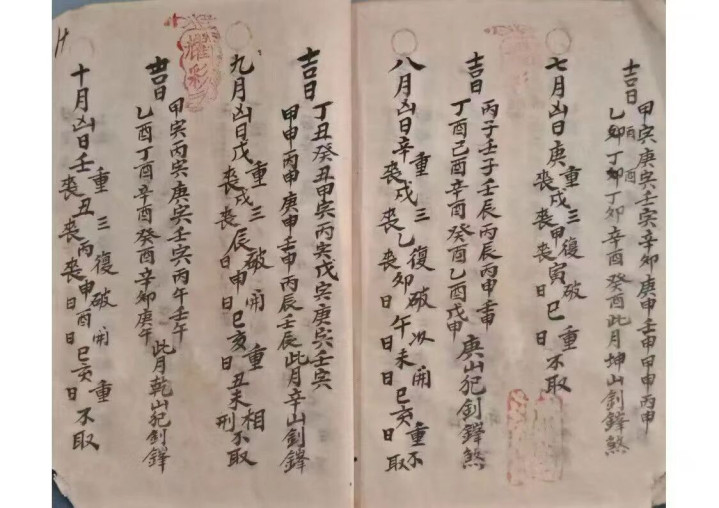 吉日甲寅庚寅壬寅辛卯庚申壬申甲申丙申
乙卯丁卯丁卯辛酉癸酉此月坤山釗鋒煞
重三復破重
七月凶日庚戌甲寅巳日不取
丧丧日
吉日丙子壬子壬辰丙辰丙申壬申
丁酉己酉辛酉癸酉乙酉戊申庚山犯釗鋒煞
重三復破開重不
八月凶日辛戌乙卯午未巳亥日取
丧丧丧日日
吉日丁丑癸丑甲寅丙寅戊寅庚寅壬寅
甲申丙申庚申壬申丙辰壬辰此月辛山釗鋒
重三破開重相
九月凶日戊戌辰申巳亥丑未不取
丧丧日日日刑
吉日甲寅丙寅庚寅壬寅丙午壬午
乙酉丁酉辛酉癸酉辛卯庚午此月乾山犯釗鋒
重三復破開重
十月凶日壬丑丙申酉巳亥不取
丧丧丧日日日
耀彩